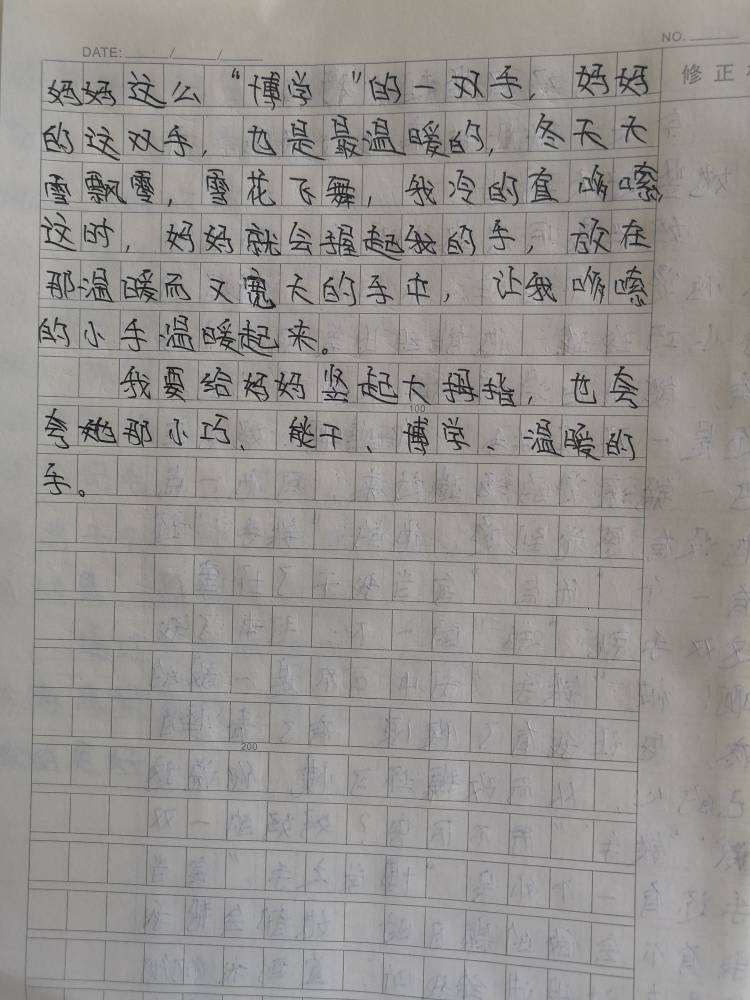 DATE: / /
NO.
修正
妈妈这么“博学”的一双手，妈妈
的这双手，也是最温暖的，冬天天
雪飘雪，雪花飞舞，我冷的直哆嗦，
这时，妈妈就会握起我的手，放在
那温暖而又宽大的手中，让我哆嗦
的小手温暖起来。
我要给妈妈竖起大拇指，也夸
100
夸她那小巧、能干、博学、温暖的
手。
200